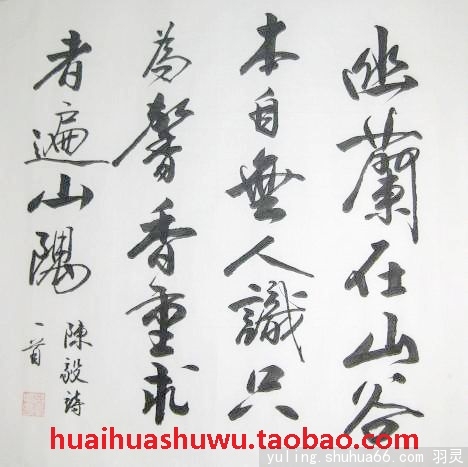 幽蘭在山谷
本自無人識只
為馨香重求
者遍山隅
陳毅詩
一首
huaihuashuwu.taobao.com
yuling.shuhua66.com 羽灵